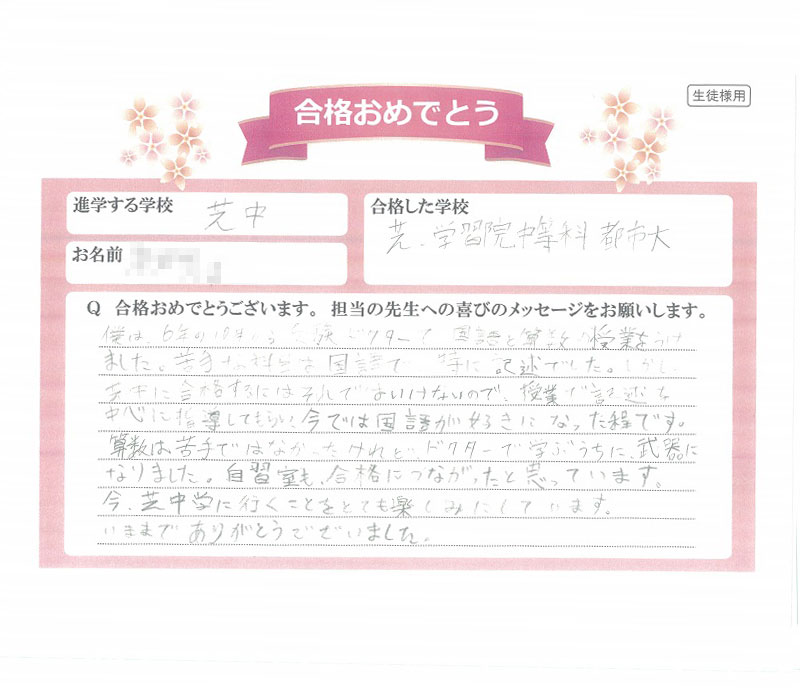 合格おめでとう
生徒様用
進学する学校 芝中
合格した学校
芝、学習院中等科 都市大
お名前
Q 合格おめでとうございます。担当の先生への喜びのメッセージをお願いします。
僕は、6年の10月から受験ドクターで国語と算数の授業をうけ
ました。苦手な科目は国語で、特に記述でした。しかし、
芝中に合格するにはそれではいけないので、授業で記述を
中心に指導してもらい今では国語が好きになった程です。
算数は苦手ではなかったけれど、ドクターで学ぶうちに、武器に
なりました。自習室も、合格につながったと思っています。
今、芝中学に行くことをとても楽しみにしています。
いままでありがとうございました。